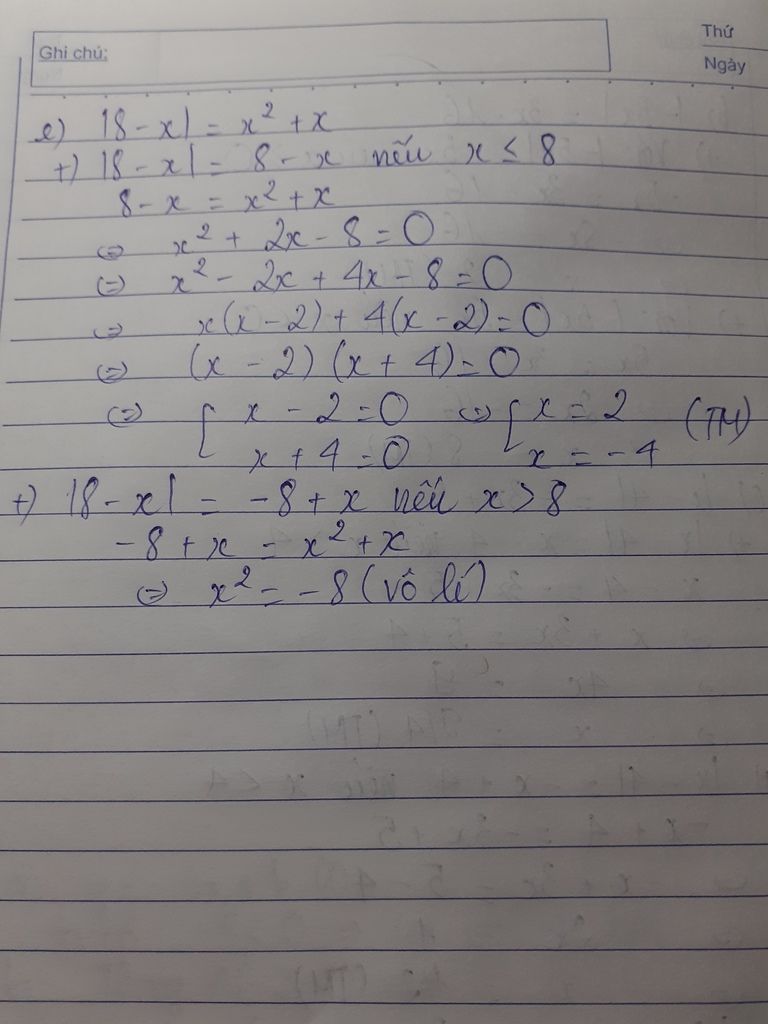 Ghi chú:
Thứ
Ngày
e) |8 - x| = x² + x
+) |8 - x| = 8 - x nếu x ≤ 8
8 - x = x² + x
⇔ x² + 2x - 8 = 0
⇔ x² - 2x + 4x - 8 = 0
⇔ x(x - 2) + 4(x - 2) = 0
⇔ (x - 2) (x + 4) = 0
⇔ [ x - 2 = 0 ⇔ [ x = 2 (TM)
x + 4 = 0 x = -4
+) |8 - x| = -8 + x nếu x > 8
-8 + x = x² + x
⇔ x² = -8 (vô lí)